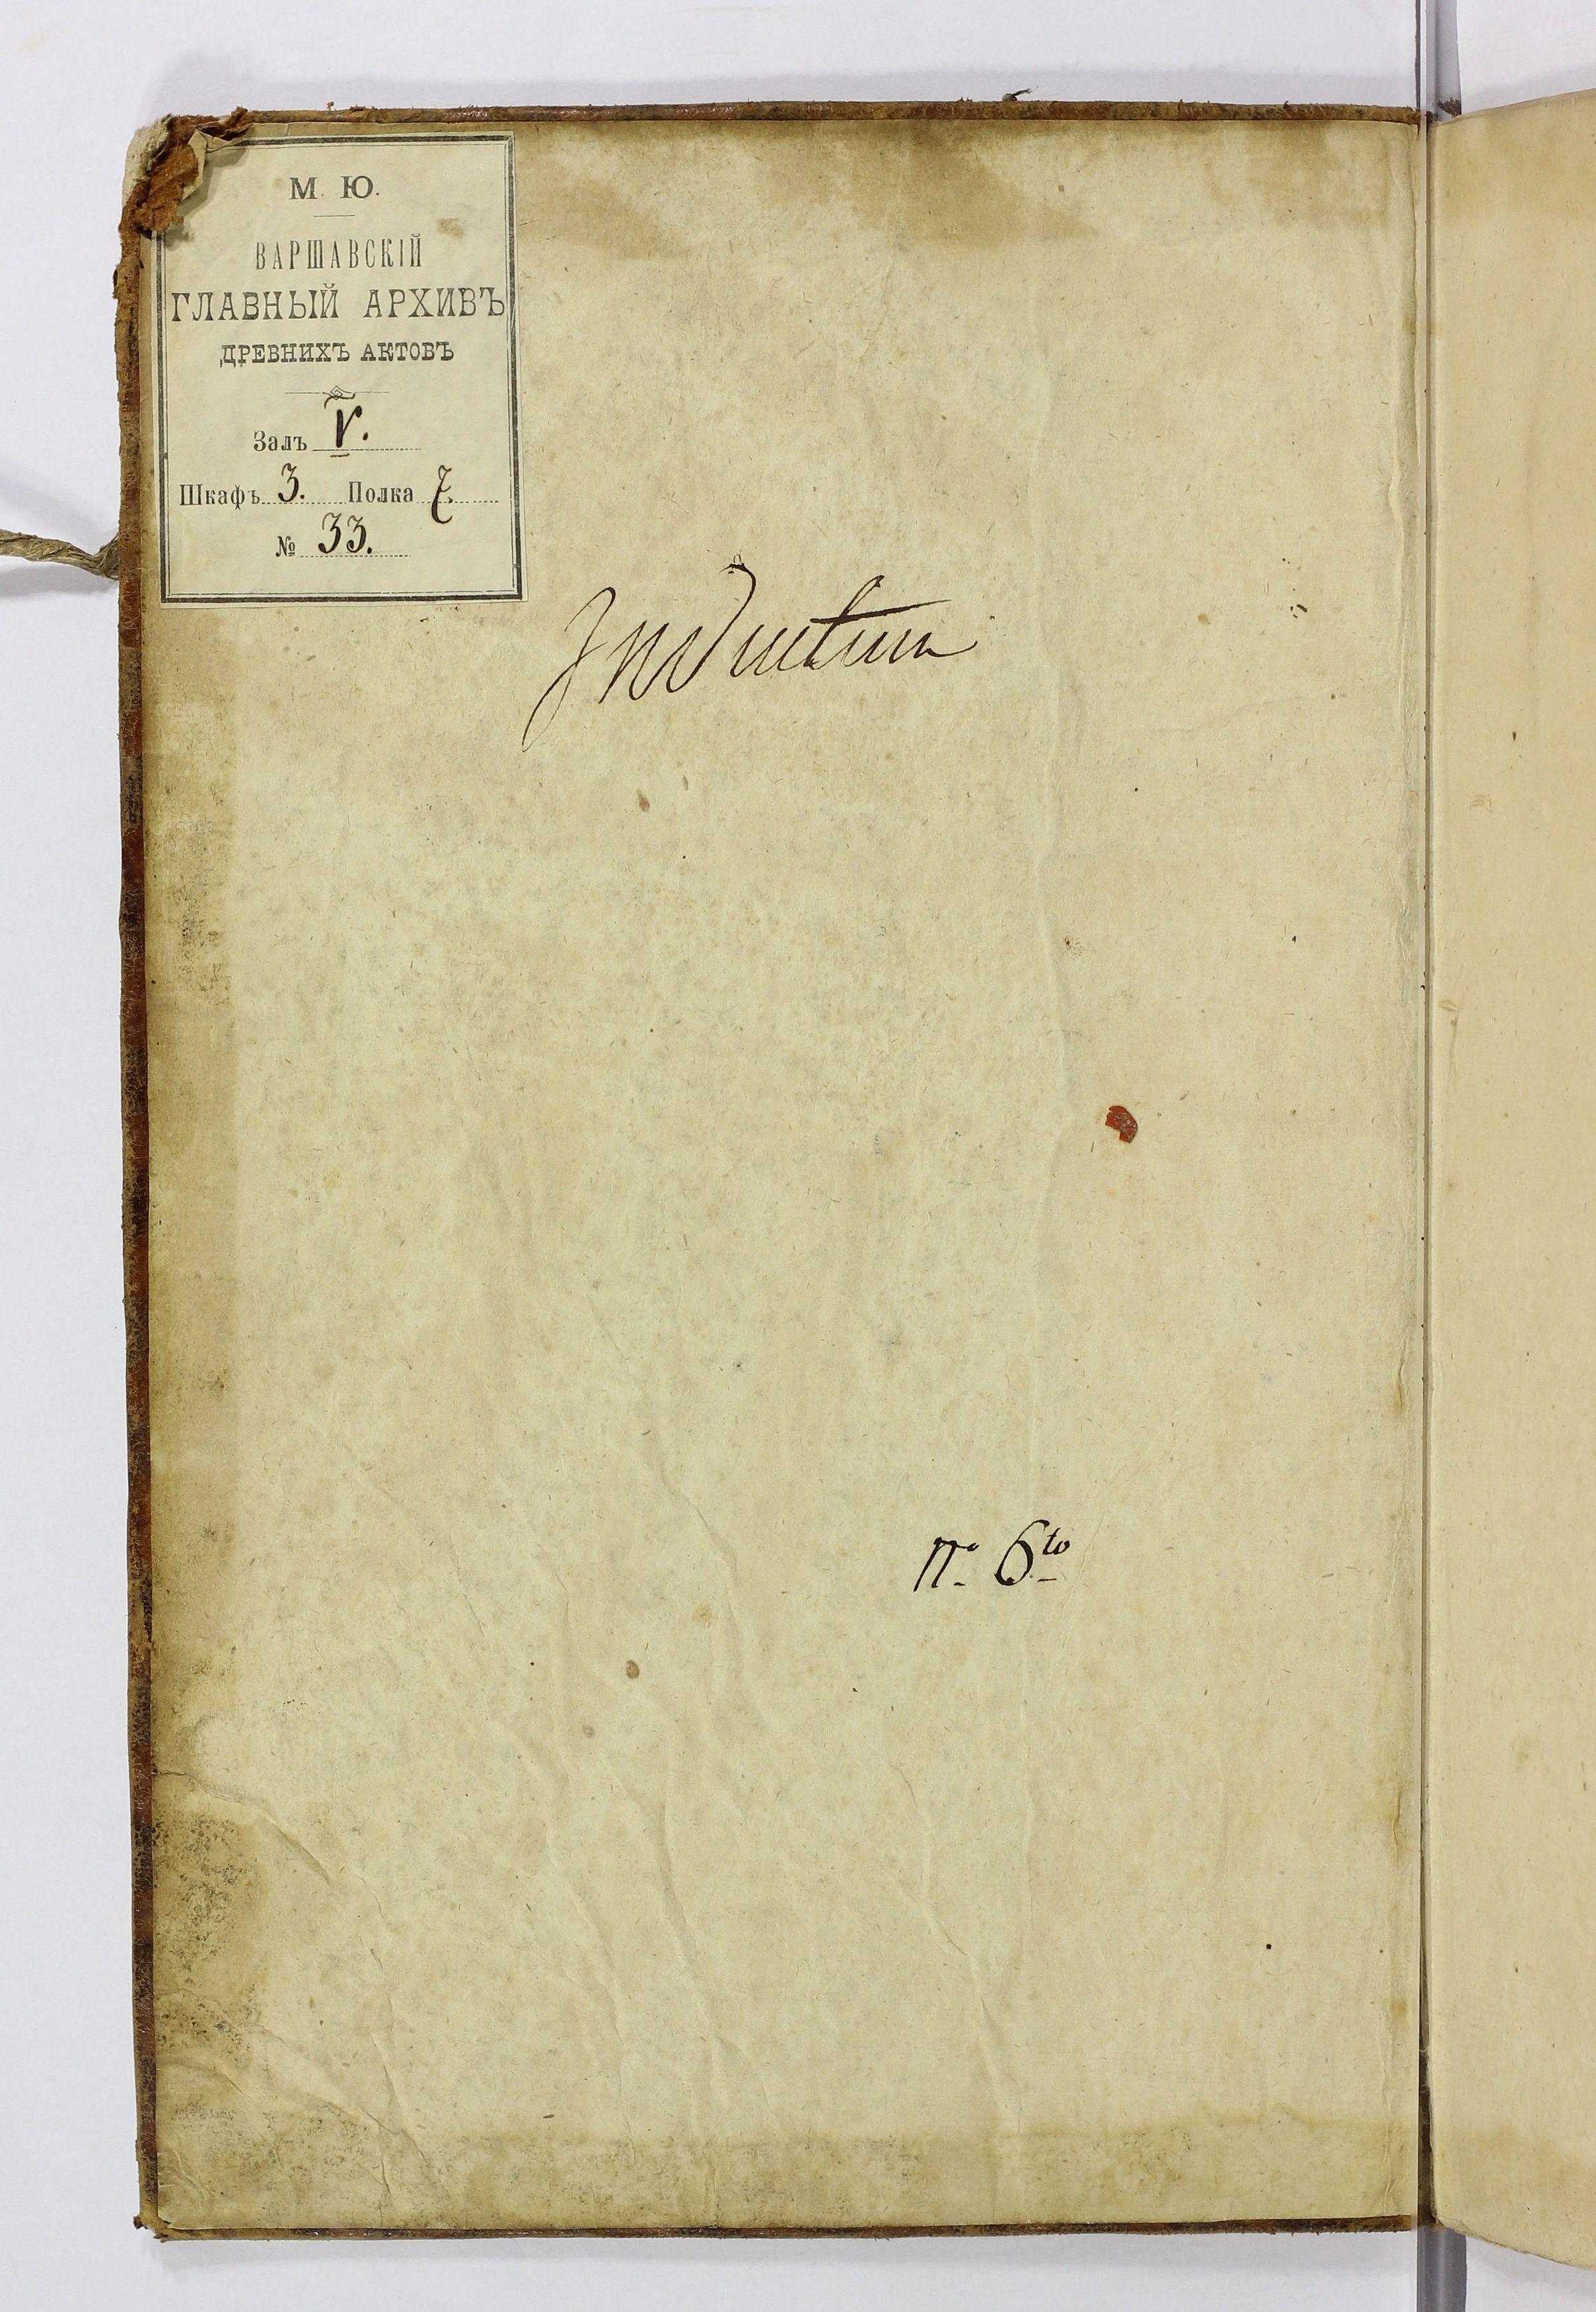 М. Ю.
ВАРШАВСКІЙ
ГЛАВНЫЙ АРХИВЪ
ДРЕВНИХЪ АКТОВЪ
Залъ V.
Шкафъ 3. Полка 7.
№ 33.
Inductum
No 6to